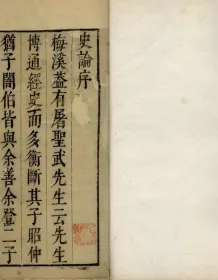 史論序
梅溪葢有屠聖武先生云先生
博通經史而多衡斷其子昭仲
猶子闇伯皆與余善余登二子